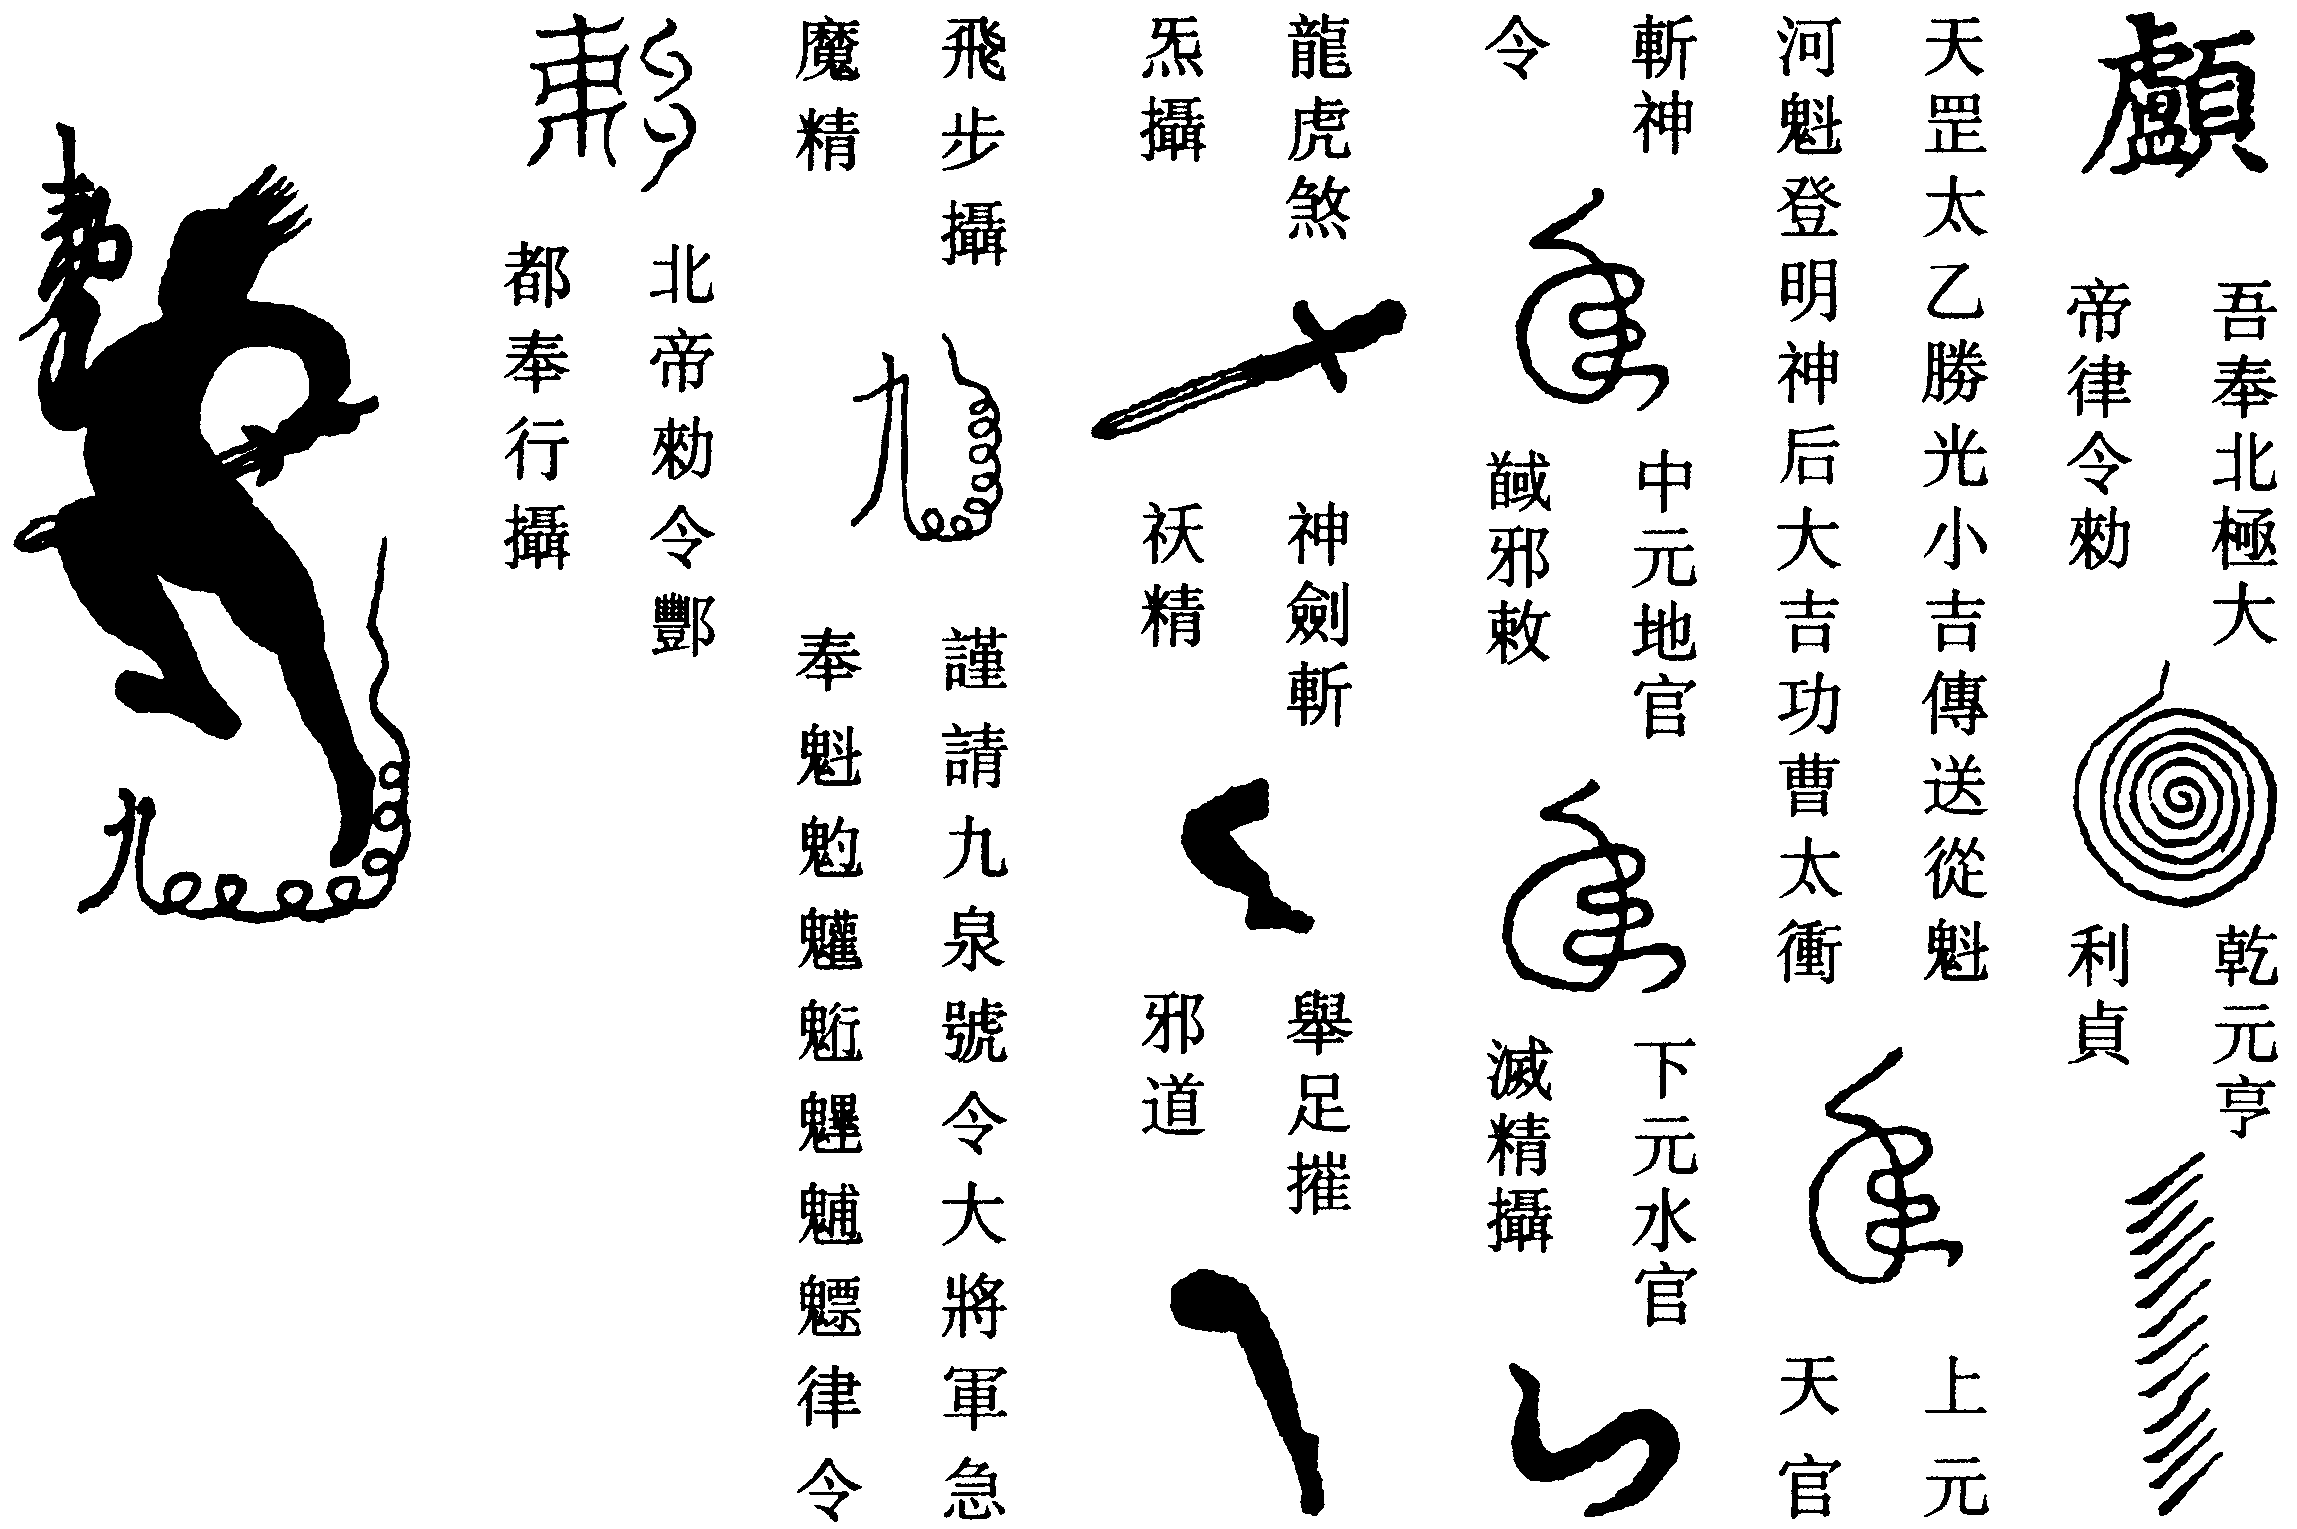 顱
吾奉北極大
帝律令勑
乾元亨
利貞
天罡太乙勝光小吉傳送從魁
河魁登明神后大吉功曹太衝
上元
天官
斬神
令
中元地官
馘邪敕
下元水官
滅精攝
龍虎煞
炁攝
神劍斬
祅精
舉足摧
邪道
飛步攝
魔精
九
謹請九泉號令大將軍急
奉魁𩲃䰱䰢魓𩳐魒律令
北帝勑令酆
都奉行攝
九